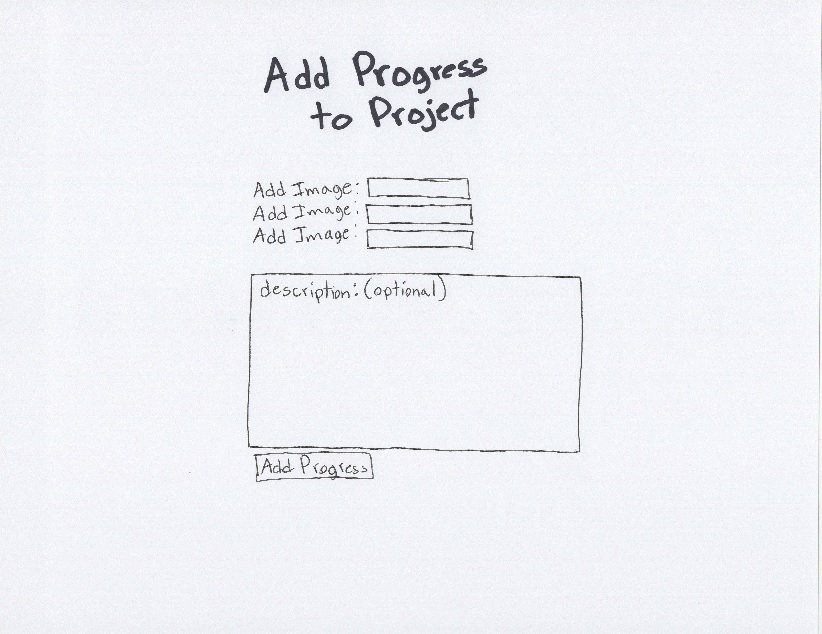 Add Progress
to Project
Add Image:
Add Image:
Add Image:
description: (optional)
Add Progress